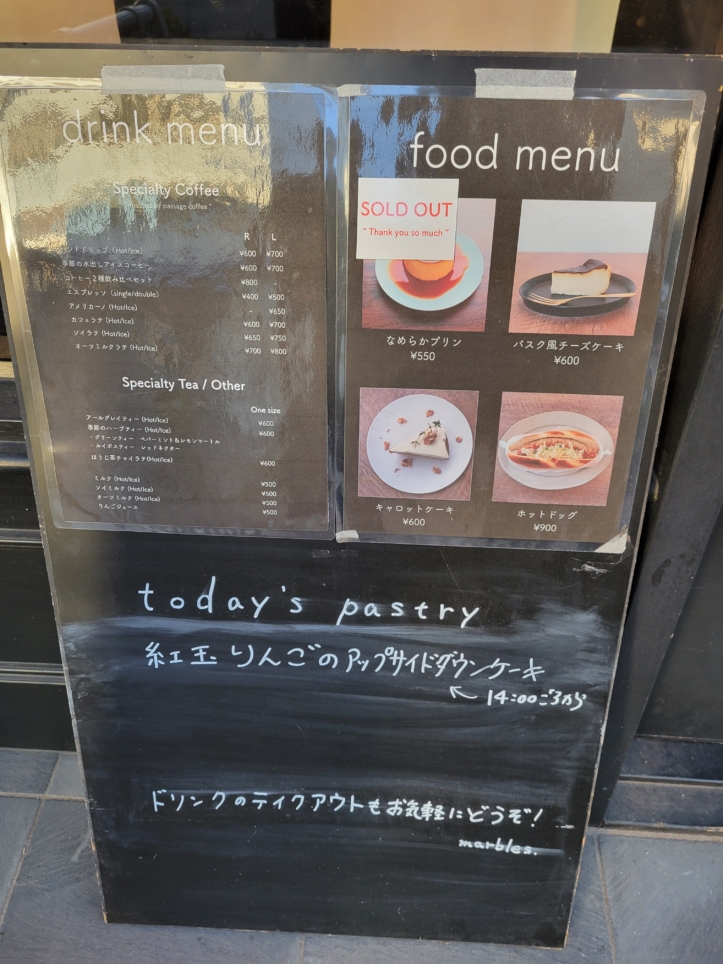 drink menu
Specialty Coffee
R L
ハンドドリップ (Hot/Ice) ¥600 ¥700
季節の水出しアイスコーヒー ¥600 ¥700
コーヒー2種飲み比べセット ¥800 -
エスプレッソ (single/double) ¥400 ¥500
アメリカーノ (Hot/Ice) - ¥650
カフェラテ (Hot/Ice) ¥600 ¥700
ソイラテ (Hot/Ice) ¥650 ¥750
オーツミルクラテ (Hot/Ice) ¥700 ¥800
Specialty Tea / Other
One size
アールグレイティー (Hot/Ice) ¥600
季節のハーブティー (Hot/Ice) ¥600
・グリーンティー ペパーミント&レモンマートル
・ルイボスティー レッドネクター
ほうじ茶チャイラテ(Hot/Ice) ¥600
ミルク (Hot/Ice) ¥500
ソイミルク (Hot/Ice) ¥500
オーツミルク (Hot/Ice) ¥500
りんごジュース ¥500
food menu
SOLD OUT
" Thank you so much "
なめらかプリン
¥550
バスク風チーズケーキ
¥600
キャロットケーキ
¥600
ホットドッグ
¥900
today's pastry
紅玉りんごのアップサイドダウンケーキ
↖ 14:00ごろから
ドリンクのテイクアウトもお気軽にどうぞ!
marbles.